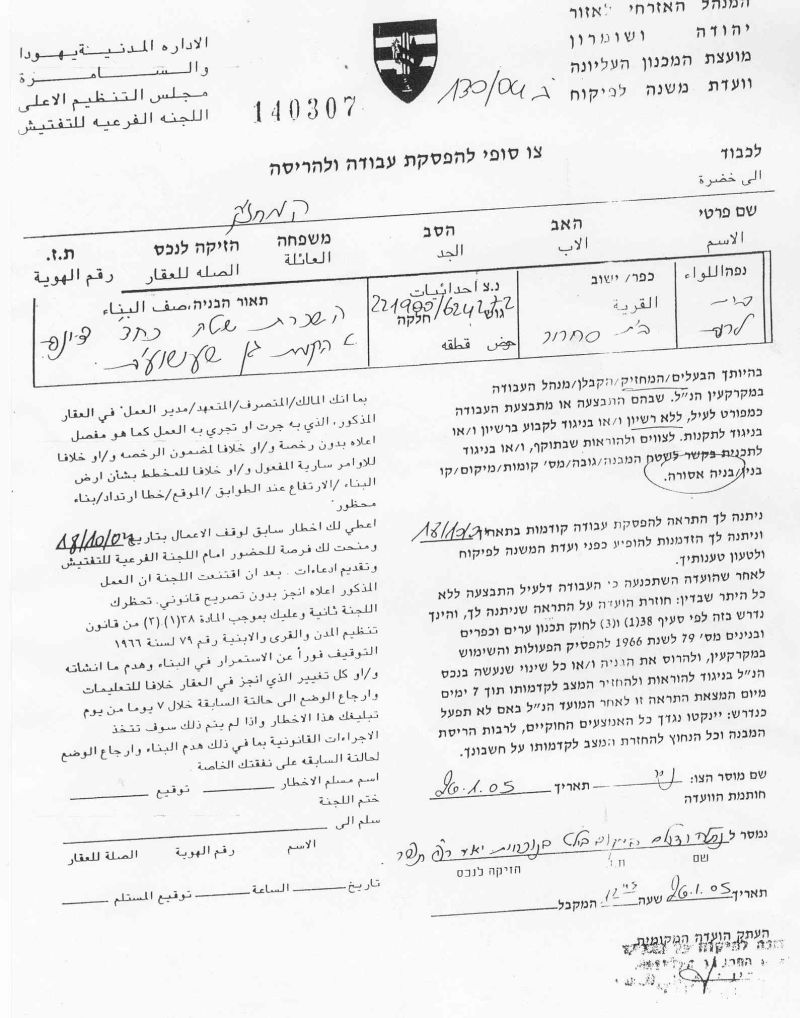 המנהל האזרחי לאזור
יהודה ושומרון
מועצת המכנון העליונה
וועדת משנה לפיקוח
ב 130/04
140307
الاداره المدنيـــة يـهـودا
والـــســـامـــرة
مجلس التنظيم الاعلى
اللجنه الفرعيه للتفتيش
צו סופי להפסקת עבודה ולהריסה
לכבוד
الى حضرة
המחזיק
שם פרטי האב הסב משפחה הזיקה לנכס ת.ז.
الاسم الاب الجد العائلة الصله للعقار رقم الهوية
נפה\اللواء כפר/ ישוב נ.צ احداثيات תאור הבניה.صف البناء
القرية 221900/624272
גוש חלקה
בית סחרור
حوض قطعه
הקמת גן שעשועים
בהיותך הבעלים/המחזיק/הקבלן/מנהל העבודה
במקרקעין הנ"ל. שבהם התבצעה או מתבצעת העבודה
כמפורט לעיל, ללא רשיון ו/או בניגוד לקבוע ברשיון ו/או
בניגוד לתקנות. לצווים ולהוראות שבתוקף, ו/או בניגוד
לתכנית בקשר לשטח המבנה/גובה/מס' קומות/מיקום/קו
בנין/בניה אסורה.
ניתנה לך התראה להפסקת עבודה קודמות בתאריך
וניתנה לך הזדמנות להופיע בפני ועדת המשנה לפיקוח
ולטעון טענותיך.
לאחר שהועדה השתכנעה כי העבודה דלעיל התבצעה ללא
כל היתר שבדין: חוזרת הועדה על התראה שניתנה לך, והינך
נדרש בזה לפי סעיף 38(1) ו(3) לחוק תכנון ערים וכפרים
ובנינים מס' 79 לשנת 1966 להפסיק הפעולות והשימוש
במקרקעין, ולהרוס את הבניה ו/או כל שינוי שנעשה בנכס
הנ"ל בניגוד להוראות ולהחזיר המצב לקדמותו תוך 7 ימים
מיום המצאת התראה זו לאחר המועד הנ"ל באם לא תפעל
כנדרש: יינקטו נגדך כל האמצעים החוקיים, לרבות הריסת
המבנה וכל הנחוץ להחזרת המצב לקדמותו על חשבונך.
שם מוסר הצו: תאריך 26.1.05
חותמת הוועדה
נמסר ל
שם ת.ז חזיקה לנכס
תאריך 26.1.05 שעה המקבל
העתק הועדה המקומית
بما انك المالك/المتصرف/المتعهد/مدير العمل في العقار
المذكور، الذي به جرت او تجري به العمل كما هو مفصل
اعلاه بدون رخصة و/او خلافا لضمون الرخصه و/او خلافا
للاوامر سارية المفعول و/او خلافا للمخطط بشأن ارض
البناء /الارتفاع عند الطوابق/الموقع/خطا ارتداد/بناء
محظور
اعطي لك اخطار سابق لوقف الاعمال بتاريخ 18/10/04
ومنحت لك فرصة للحضور امام اللجنة الفرعية للتفتيش
وتقديم ادعاءات . بعد ان اقتنعت اللجنة ان العمل
المذكور اعلاه انجز بدون تصريح قانوني. تحظرك
اللجنة ثانية وعليك بموجب المادة ٣٨(١) (٣) من قانون
تنظيم المدن والقرى والابنية رقم ٧٩ لسنة ١٩٦٦
التوقيف فوراً عن الاستمرار في البناء وهدم ما انشاته
و/او كل تغيير الذي انجز في العقار خلافا للتعليمات
وارجاع الوضع الى حالتة السابقة خلال ٧ يوما من يوم
تبليغك هذا الاخطار واذا لم يتم ذلك سوف تتخذ
الاجراءات القانونية بما في ذلك هدم البناء وارجاع الوضع
لحالتة السابقه على نفقتك الخاصة
اسم مسلم الاخطار توقيع
ختم اللجنة
سلم الى
الاسم رقم الهوية الصلة للعقار
تاريخ الساعة توقيع المستلم